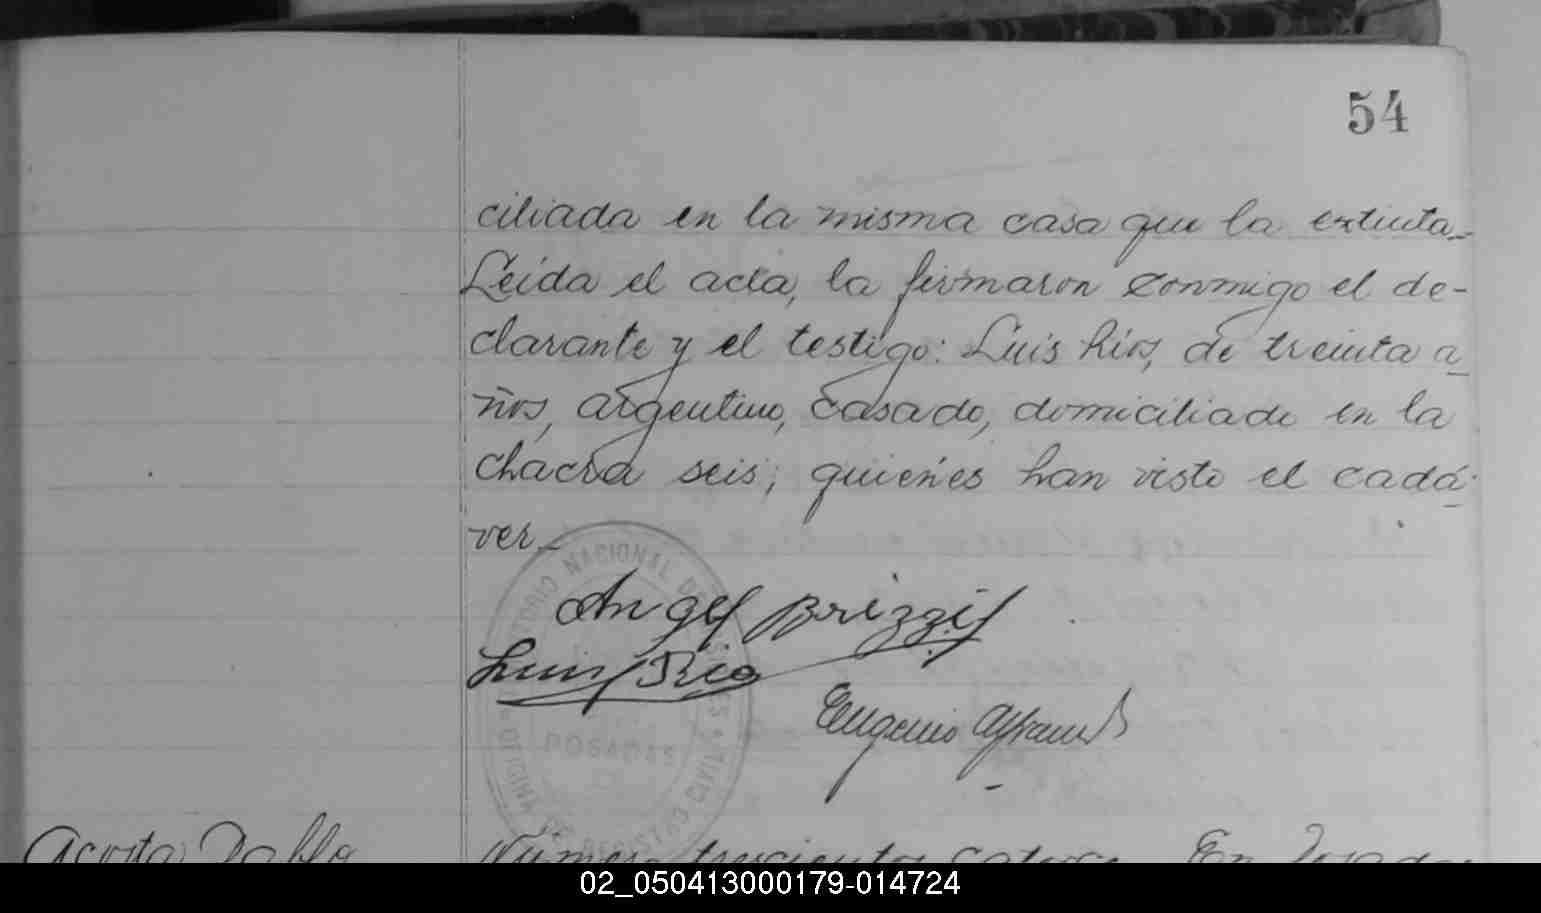 54
ciliada en la misma casa que la extinta.-
Leída el acta, la firmaron conmigo el de-
clarante y el testigo: Luis Ríos, de treinta a-
ños, argentino, casado, domiciliado en la
chacra seis; quienes han visto el cadá-
ver.-
TERRITORIO NACIONAL DE MISIONES
Angel Brizzi
Luis Rio
Eugenio
POSADAS
OFICINA DE REGISTRO CIVIL
Acosta Pablo
Número trescientos catorce. En Posadas
02_050413000179-014724